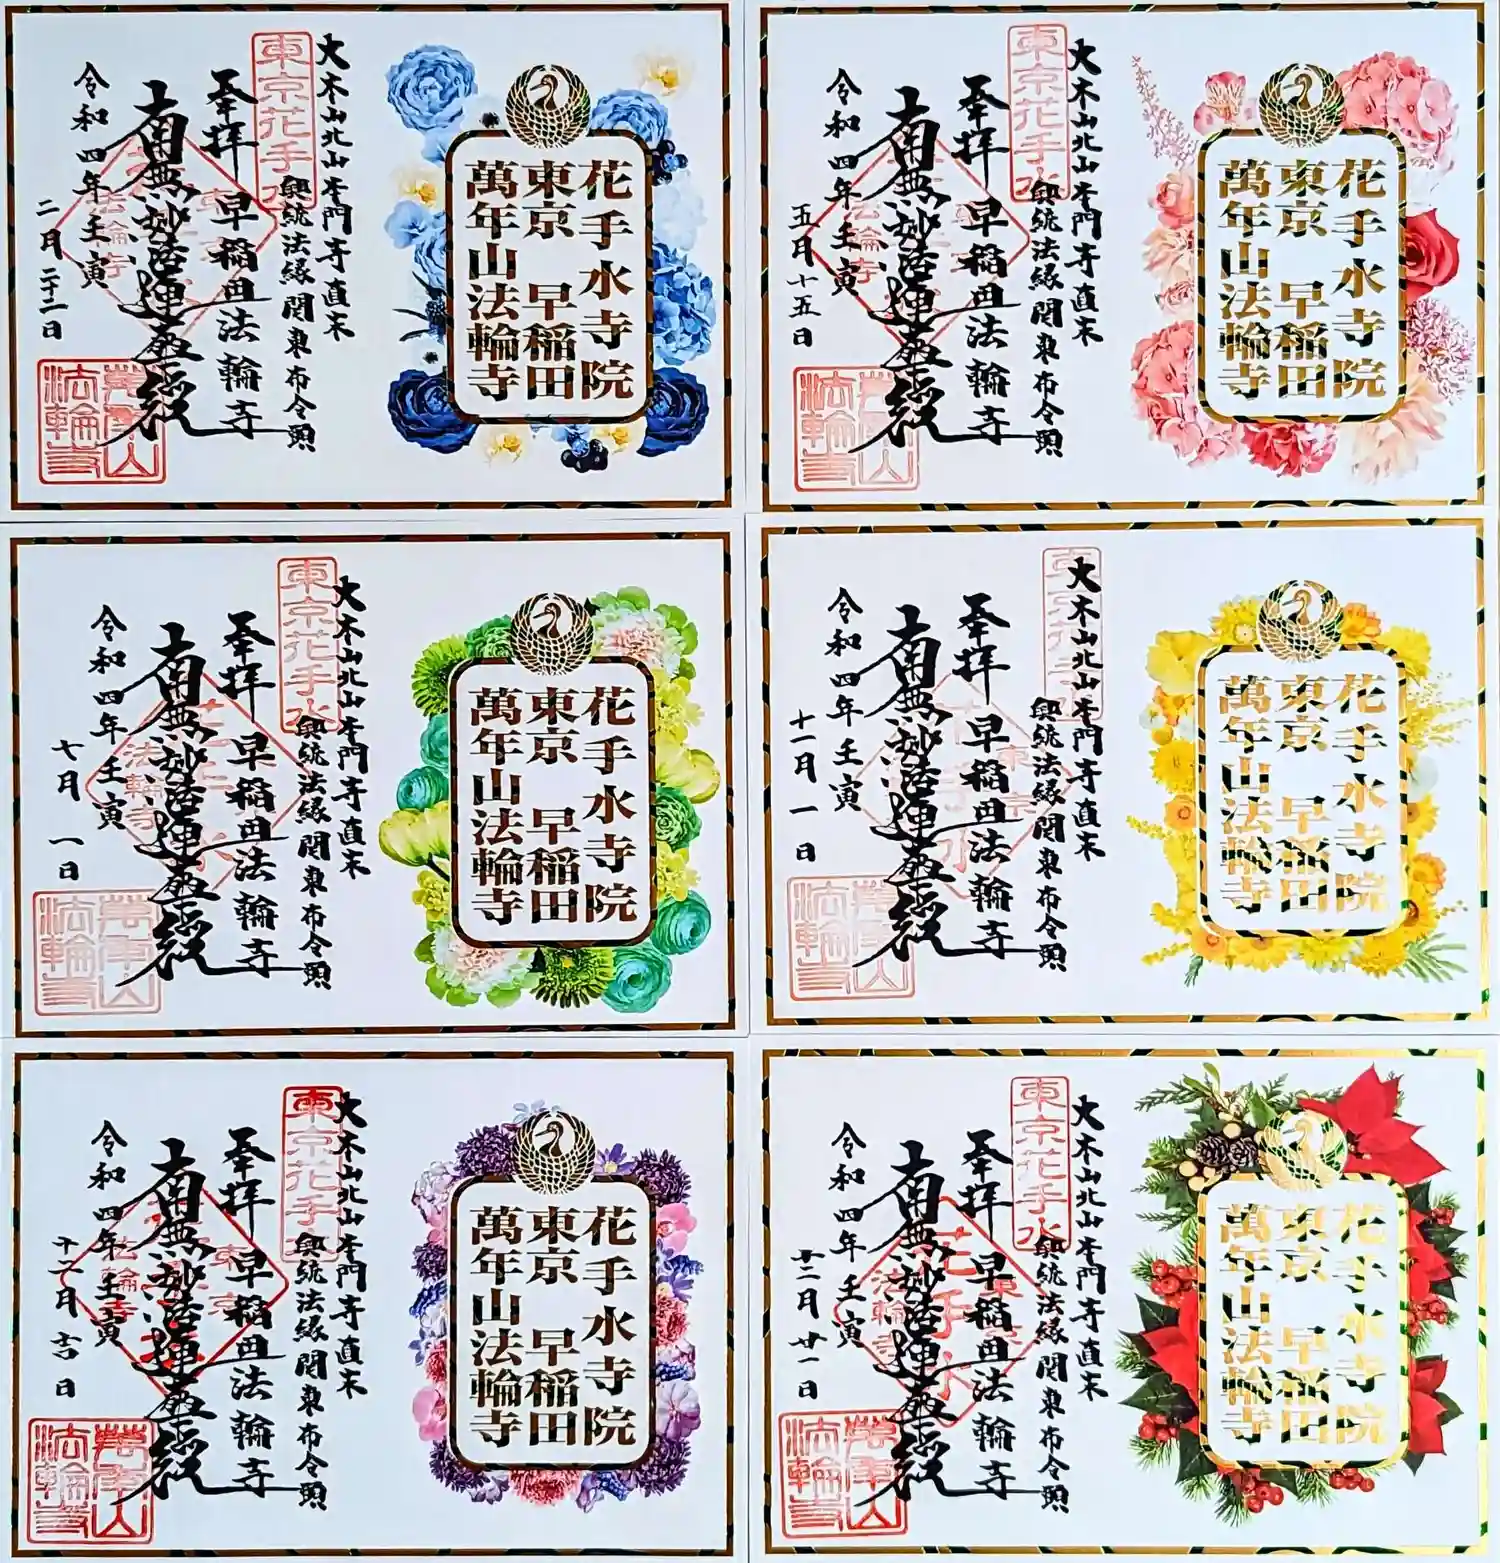 花手水寺院
東京 早稲田
萬年山法輪寺
大本山北山本門寺直末
興統法縁関東布令頭
東京花手水
奉拝 早稲田法輪寺
南無妙法蓮華経
令和四年壬寅
二月二十二日
萬年山
法輪寺
花手水寺院
東京 早稲田
萬年山法輪寺
大本山北山本門寺直末
興統法縁関東布令頭
東京花手水
奉拝 早稲田法輪寺
南無妙法蓮華経
令和四年壬寅
五月十五日
萬年山
法輪寺
花手水寺院
東京 早稲田
萬年山法輪寺
大本山北山本門寺直末
興統法縁関東布令頭
東京花手水
奉拝 早稲田法輪寺
南無妙法蓮華経
令和四年壬寅
七月一日
萬年山
法輪寺
花手水寺院
東京 早稲田
萬年山法輪寺
大本山北山本門寺直末
興統法縁関東布令頭
東京花手水
奉拝 早稲田法輪寺
南無妙法蓮華経
令和四年壬寅
十一月一日
萬年山
法輪寺
花手水寺院
東京 早稲田
萬年山法輪寺
大本山北山本門寺直末
興統法縁関東布令頭
東京花手水
奉拝 早稲田法輪寺
南無妙法蓮華経
令和四年壬寅
十二月吉日
萬年山
法輪寺
花手水寺院
東京 早稲田
萬年山法輪寺
大本山北山本門寺直末
興統法縁関東布令頭
東京花手水
奉拝 早稲田法輪寺
南無妙法蓮華経
令和四年壬寅
十二月廿一日
萬年山
法輪寺